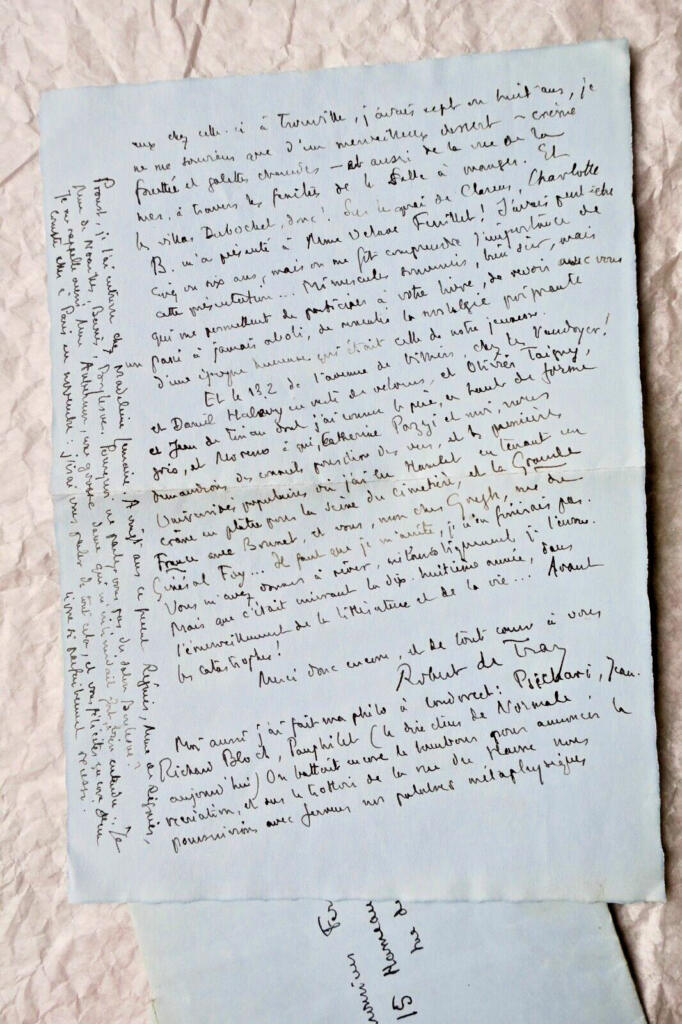 eux chez celle-ci à Trouville, j'avais sept ou huit ans, je
ne me souviens que d'un merveilleux dessert – crème
fouettée et galettes chaudes – et aussi de la vue de la
mer, à travers les fenêtres de la salle à manger. Et
les villas Dubochet, donc! Sur le quai de Clarens, Charlotte
B. m'a présenté à Mme Octave Feuillet! J'avais peut-être
cinq ou six ans, mais on me fit comprendre l'importance de
cette présentation... Minuscules souvenirs, bien sûr, mais
qui me permettent de participer à votre livre, de revoir avec vous
un passé à jamais aboli, de ressentir la nostalgie poignante
d'une époque heureuse qui était celle de notre jeunesse.
Et le 132 de l'avenue de Villiers, chez les Vaudoyer!
et Daniel Halévy en veste de velours, et Olivier Taigny,
et Jean de Tinan dont j'ai connu le père, en haut de forme
gris, et Moreno à qui, Catherine Pozzi et moi, nous
demandions des conseils pour dire des vers, et les premières
Universités populaires où j'ai lu Hamlet en tenant un
crâne en plâtre pour la scène du cimetière, et la Grande
France avec Bounet, et vous, mon cher Gregh, rue du
Général Foy... Il faut que je m'arrête, je n'en finirais pas.
Vous m'avez donné à rêver, mélancoliquement, je l'avoue.
Mais que c'était enivrant la dix-huitième année, dans
l'émerveillement de la littérature et de la vie... Avant
les catastrophes!
Merci donc encore, et de tout coeur à vous
Robert de Traz
Moi aussi j'ai fait ma philo à Condorcet: Psichari, Jean-
Richard Bloch, Pauphilet (le directeur de Normale
aujourd'hui) On battait encore le tambour pour annoncer la
récréation, et sur le trottoir de la rue du Havre nous
poursuivions avec ferveur nos palabres métaphysiques
Proust, je l'ai entrevu chez Madeleine Lemaire. A vingt ans ce fut Régnier, Mme de Régnier,
Mme de Noailles, Barrès, Boylesve. Pourquoi ne parlez-vous pas du salon Bulteau?
Je me rappelle aussi Mme Aubernon, une grosse dame qui m'intimidait fort, bien entendu... Je
compte aller à Paris en novembre: j'irai vous parler de tout cela, et vous féliciter encore d'un
livre si parfaitement réussi.
15 Hameau